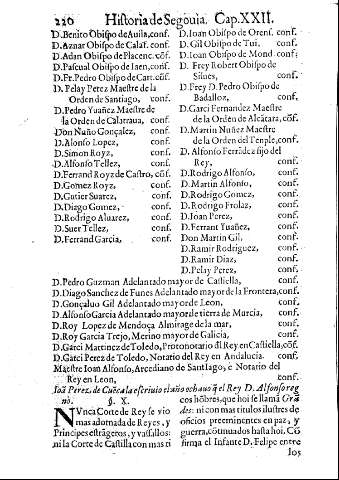 220 Historia de Segouia. Cap. XXII.
D. Benito Obispo de Auila, conf.
D. Aznar Obispo de Calaf. conf.
D. Adan Obispo de Placenc. cõf.
D. Pascual Obispo de Iaen, conf.
D. Fr. Pedro Obispo de Cart. cõf.
D. Pelay Perez Maestre de la
Orden de Santiago, conf.
D. Pedro Yuañez Maestre de
la Orden de Calatraua, conf.
Don Nuño Gonçalez, conf.
D. Alonso Lopez, conf.
D. Simon Royz, conf.
D. Alfonso Tellez, conf.
D. Ferrand Royz de Castro, cõf.
D. Gomez Royz, conf.
D. Gutier Suarez, conf.
D. Diago Gomez, conf.
D. Rodrigo Aluarez, conf.
D. Suer Tellez, conf.
D. Ferrand Garcia, conf.
D. Ioan Obispo de Orens. conf.
D. Gil Obispo de Tui, conf.
D. Ioan Obispo de Mond. conf.
D. Frey Robert Obispo de
Silues, conf.
D. Frey D. Pedro Obispo de
Badalloz, conf.
D. Garci Fernandez Maestre
de la Orden de Alcãtara, cõf.
D. Martin Nuñez Maestre
de la Orden del Tenple, conf.
D. Alfonso Ferrãdez fijo del
Rey, conf.
D. Rodrigo Alfonso, conf.
D. Martin Alfonso, conf.
D. Rodrigo Gomez, conf.
D. Rodrigo Frolaz, conf.
D. Ioan Perez, conf.
D. Ferrant Yuañez, conf.
Don Martin Gil, conf.
D. Ramir Rodriguez, conf.
D. Ramir Diaz, conf.
D. Pelay Perez, conf.
D. Pedro Guzman Adelantado mayor de Castiella, conf.
D. Diago Sanchez de Funes Adelantado mayor de la Frontera, conf.
D. Gonçaluo Gil Adelantado mayor de Leon, conf.
D. Alfonso Garcia Adelantado mayor de tierra de Murcia, conf.
D. Roy Lopez de Mendoça Almirage de la mar, conf.
D. Roy Garcia Trejo, Merino mayor de Galicia, conf.
D. Garci Martinez de Toledo, Protonotario dl Rey en Castiella, cõf.
D. Garci Perez de Toledo, Notario del Rey en Andalucia. conf.
Maestre Ioan Alfonso, Arcediano de Santiago, e Notario del
Rey en Leon, conf.
Ioã Perez de Cuẽca la escriuio el año
q̃ el Rey D. Alfonso reg
nò. §. X.
NVnca Corte de Rey se vio
mas adornada de Reyes, y
Principes estrãgeros, y vassallos:
ni la Corte de Castilla con mas ti
cos hõbres, que hoi se llamã Grã
des: ni con mas titulos ilustres de
oficios preeminentes en paz, y
guerra, cõtinuados hasta hoi. Cõ
firma el Infante D. Felipe entre
los